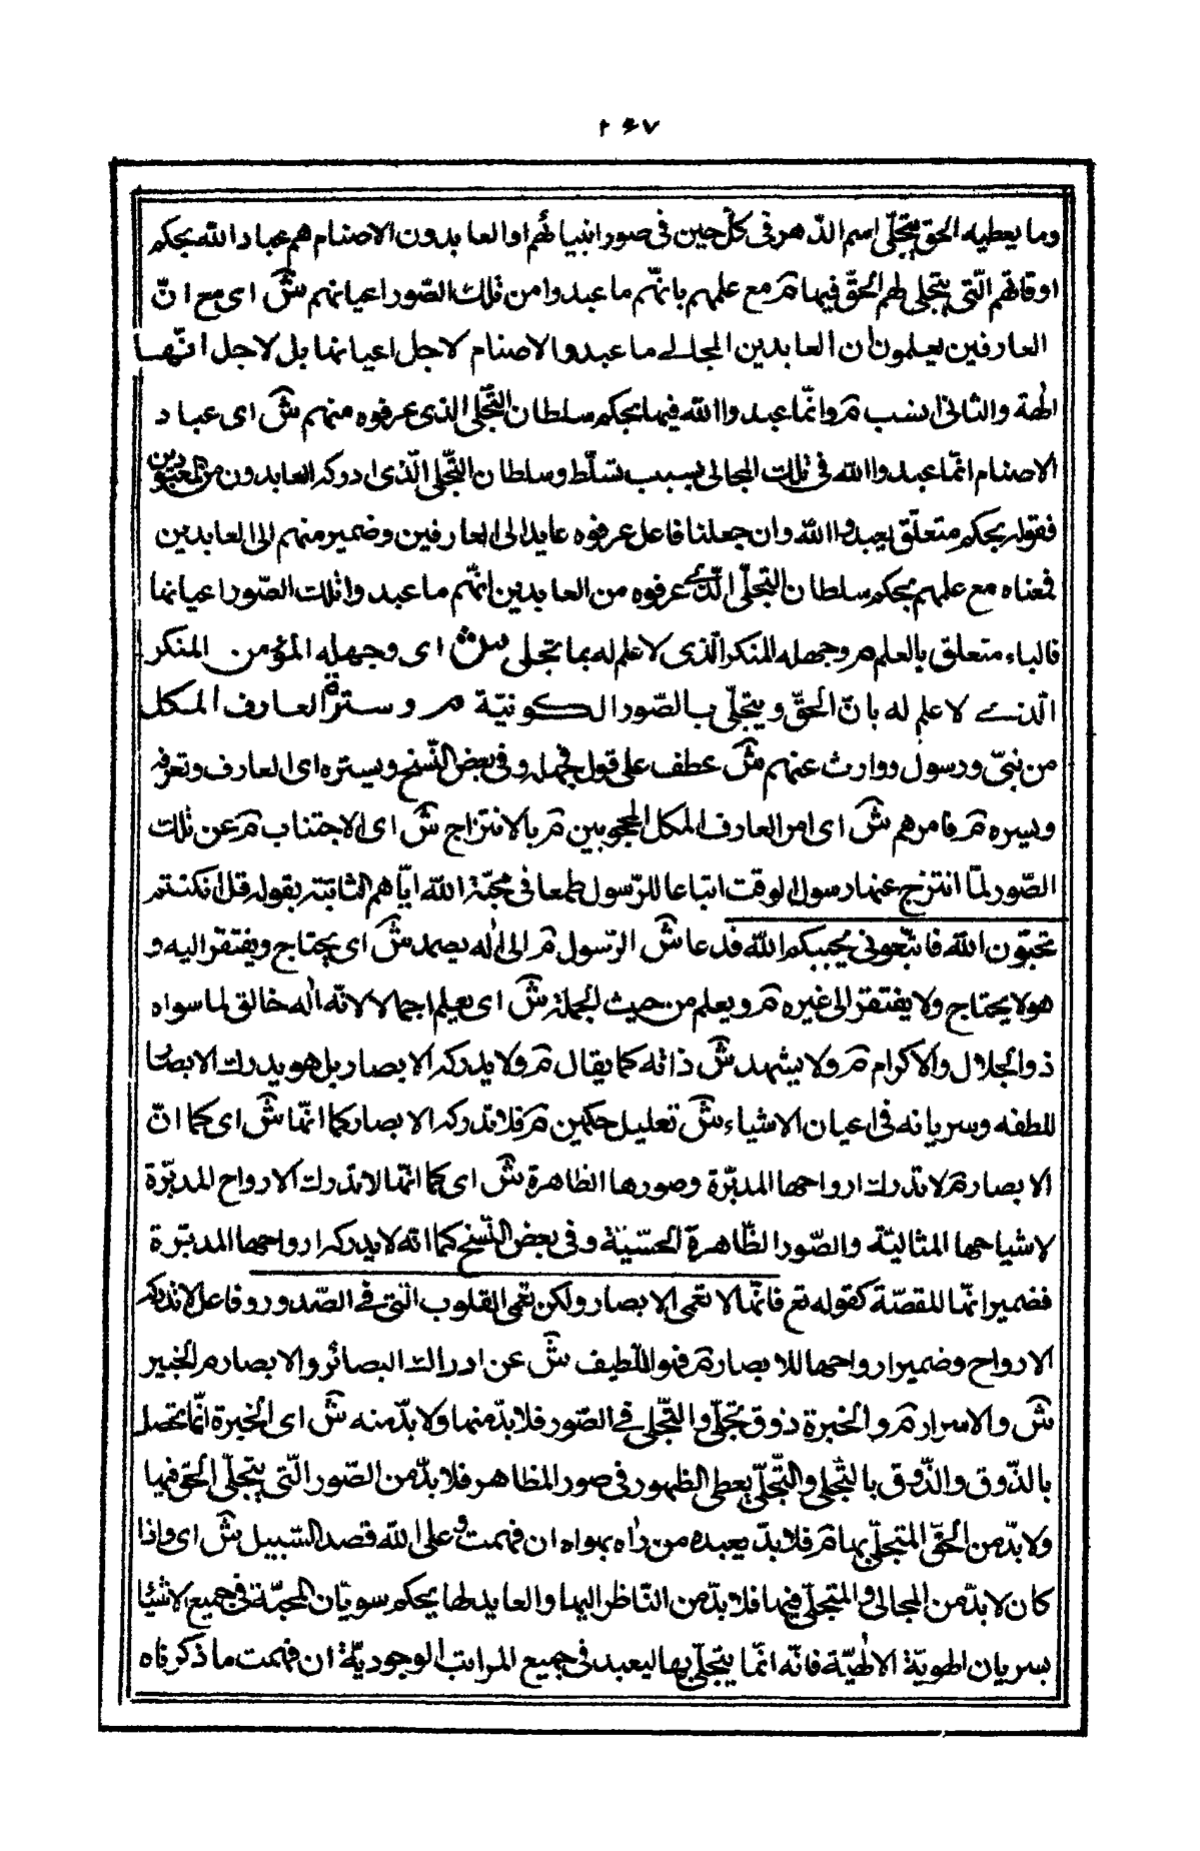 ٢٤٧
وما يعطيه الحق بتجلّى اسم الدّهر فى كلّ حين فى صور انبيائهم او العابدون الاصنام هم عباد الله بحكم
اوقاتهم الّتى يتجلى لهم الحقّ فيها مَ مع علمهم بانّهم ما عبدوا من تلك الصّور اعيانهم شَ اى مع انّ
العارفين يعلمون ان العابدين المجالى ما عبدوا الاصنام لاجل اعيانها بل لاجل انّهـا
الهة والثانى انسب مَ وانّما عبدوا الله فيها بحكم سلطان التّجلّى الذى عرفوه منهم شَ اى عباد
الاصنام انّما عبدوا الله فى تلك المجالى بسبب تسلّط وسلطان التّجلّى الّذى ادركه العابدون من المعبودين
فقوله بحكم متعلّق بعبدوا الله وان جعلنا فاعل عرفوه عايدا الى العارفين وضمير منهم الى العابدين
فمعناه مع علمهم بحكم سلطان التجلّى الّذى عرفوه من العابدين انّهم ما عبدوا تلك الصّور اعيانها
فالباء متعلق بالعلم مَ وجهله المنكر الّذى لا علم له بما تجلى شَ اى وجهله المؤمن المنكر
الّذى لا علم له بانّ الحقّ ويتجلّى بـالصّور الـكونيّة مَ وستره العارف المكل
من نبىّ ورسول ووارث عنهم شَ عطف على قول فجهله وفى بعض النّسخ ويستره اى العارف وتعرفه
ويسره مَ فامرهم شَ اى امر العارف المكل المحجوبين مَ بالانتزاح شَ اى الاجتناب مَ عن تلك
الصّور لمّا انتزح عنها رسول الوقت اتباعا للرّسول طمعا فى محبّة الله ايّاهم الثابتة بقوله قل ان كنتم
تحبّون الله فاتّبعونى يحببكم الله فدعا شَ الرّسول مَ الى اله يصمد شَ اى يحتاج ويفتقر اليه و
هو لا يحتاج ولا يفتقر الى غيره مَ ويعلم من حيث الجملة شَ اى يعلم اجمالا لانّه اله خالق لما سواه
ذو الجلال والاكرام مَ ولا يشهد شَ ذاته كما يقال مَ ولا يدركه الابصار بل هو يدرك الابصا
للطفه وسريانه فى اعيان الاشياء شَ تعليل حكمين مَ فلا تدركه الابصار كما انّها شَ اى كما انّ
الابصار مَ لا تدرك ارواحها المدبّرة وصورها الظاهرة شَ اى كما انّها لا تدرك الارواح المدبّرة
لاشباحها المثاليّة والصّور الظّاهرة الحسّيّة وفى بعض النّسخ كما انه لا يدركه ارواحها المدبّرة
فضمير انّها للقصّة كقوله تع فانّها لا تعمى الابصار ولكن تعمى القلوب الّتى فى الصّدور وفاعل لا تدركه
الارواح وضمير ارواحها للابصار مَ فهو اللّطيف شَ عن ادراك البصائر والابصار مَ الخبير
شَ والاسرار مَ والخبرة ذوق تجلّى والتّجلّى فى الصّور فلا بدّ منها ولا بدّ منه شَ اى الخبرة انّما تحصل
بالذّوق والذّوق بالتّجلّى والتّجلّى يعطى الظهور فى صور المظاهر فلا بدّ من الصّور الّتى يتجلّى الحق فيها
ولا بدّ من الحقّ المتجلّى بها مَ فلا بدّ يعبده من راه بهواه ان فهمت وعلى الله قصد السّبيل شَ اى واذا
كان لا بدّ من المجالى والمتجلّى فيها فلا بدّ من النّاظر اليها والعابد لها بحكم سريان المحبّة فى جميع الاشيا
بسريان الهويّة الالهيّة فانّه انّما يتجلّى بها ليعبد فى جميع المراتب الوجوديّة ان فهمت ما ذكرناه